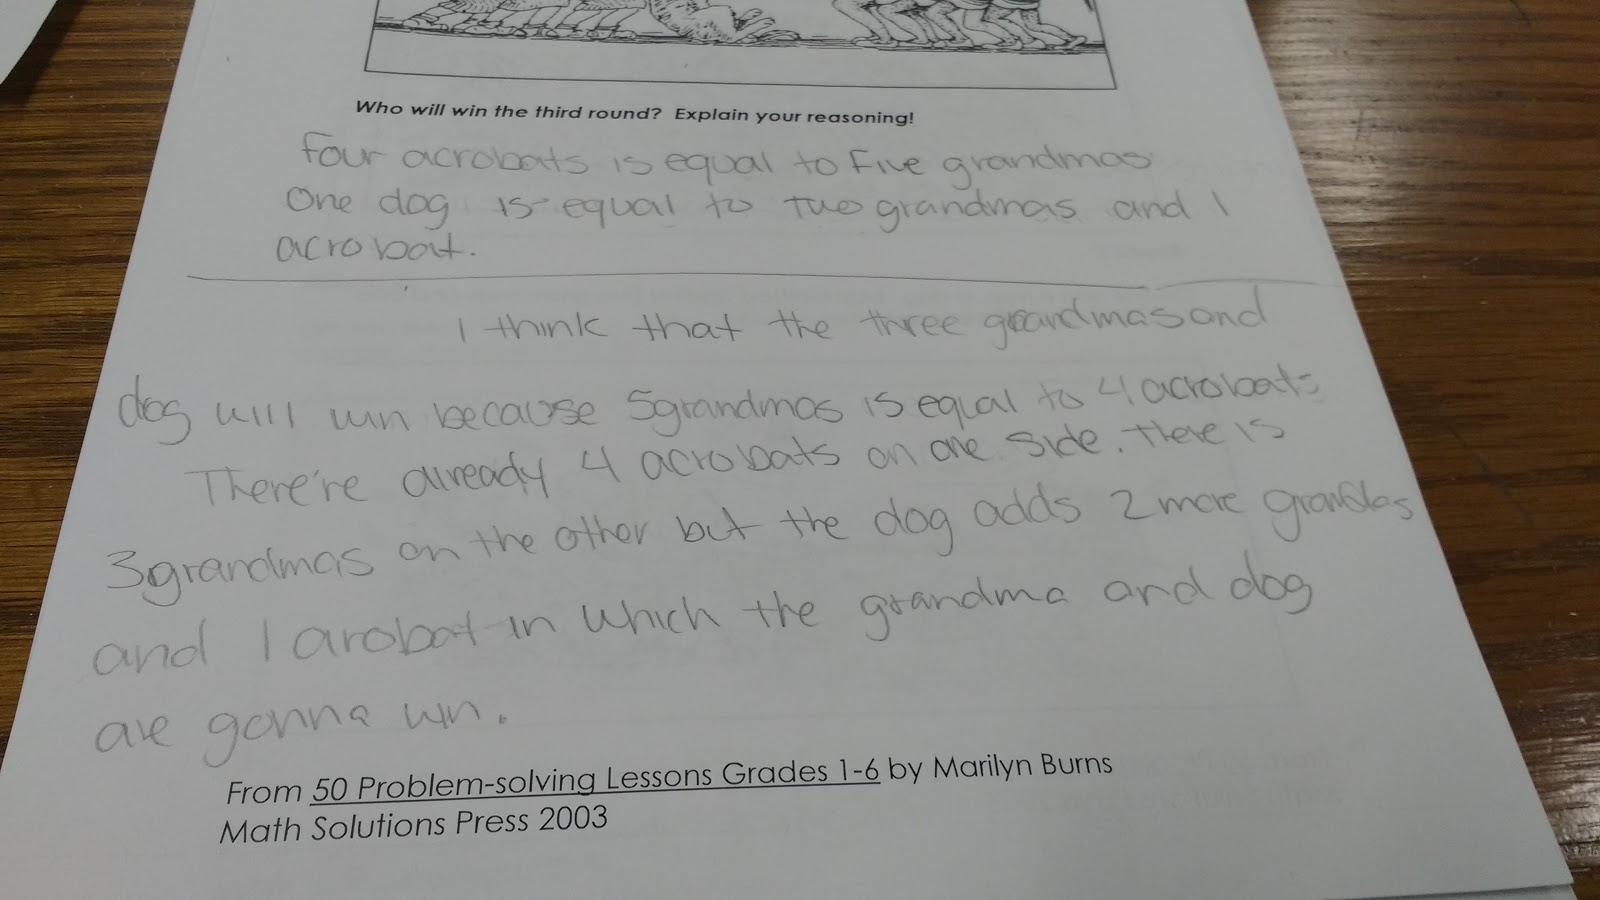 Who will win the third round? Explain your reasoning!
Four acrobats is equal to Five grandmas
One dog is equal to two grandmas and 1
acrobat.
I think that the three grandmas and
dog will win because 5grandmas is equal to 4 acrobats
There're already 4 acrobats on one side. There is
3grandmas on the other but the dog adds 2 more
and 1 arobat in which the grandma and dog
are gonna win.
From 50 Problem-solving Lessons Grades 1-6 by Marilyn Burns
Math Solutions Press 2003